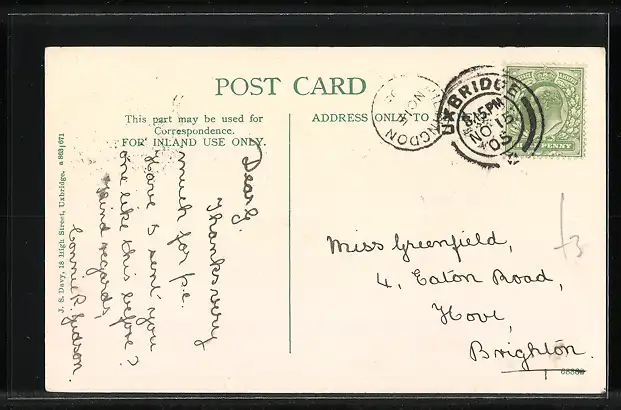 POST CARD
This part may be used for
Correspondence.
FOR INLAND USE ONLY.
ADDRESS ONLY TO
UXBRIDGE
8.15PM
NO 15
05
J. S. Davy, 18 High Street, Uxbridge.
Dear G.
Thanks very
much for p.c.
Have I sent you
one like this before?
Kind regards,
Connie R. Judson.
Miss Greenfield,
4, Eaton Road,
Hove,
Brighton.